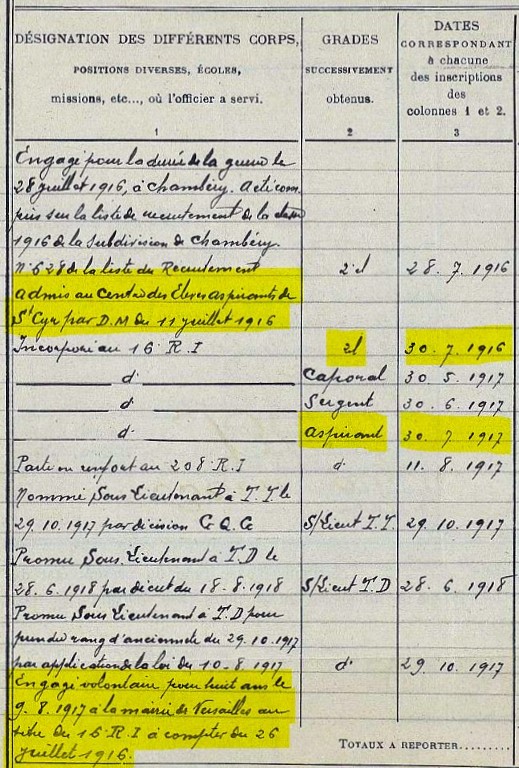 DÉSIGNATION DES DIFFÉRENTS CORPS,
POSITIONS DIVERSES, ÉCOLES,
missions, etc..., où l'officier a servi.
1
GRADES
SUCCESSIVEMENT
obtenus.
2
DATES
CORRESPONDANT
à chacune
des inscriptions
des
colonnes 1 et 2.
3
Engagé pour la durée de la guerre le
28 juillet 1916, à Chambéry. A été com
pris sur la liste de recrutement de la classe
1916 de la Subdivision de Chambéry.
N° 628 de la liste du Recrutement 2e cl 28. 7. 1916
admis au Centre des Elèves aspirants de
St Cyr par D.M du 11 juillet 1916
Incorporé au 16 R.I 2cl 30. 7. 1916
d° Caporal 30. 5. 1917
d° Sergent 30. 6. 1917
d° Aspirant 30. 7. 1917
Parti en renfort au 208 R.I d° 11. 8. 1917
Nommé Sous Lieutenant à T.T le
29.10.1917 par décision G.Q.G S/Lieut T.T. 29. 10. 1917
Promu Sous Lieutenant à T.D le
28.6.1918 par décret du 18.8.1918 S/Lieut T.D 28. 6. 1918
Promu Sous Lieutenant à T.D pour
prendre rang d'ancienneté du 29.10.1917
par application de la loi du 10.8.1917 d° 29. 10. 1917
Engagé volontaire pour huit ans le
9.8.1917 à la mairie de Versailles au
titre du 16 R.I à compter du 26
juillet 1916.
TOTAUX A REPORTER.........